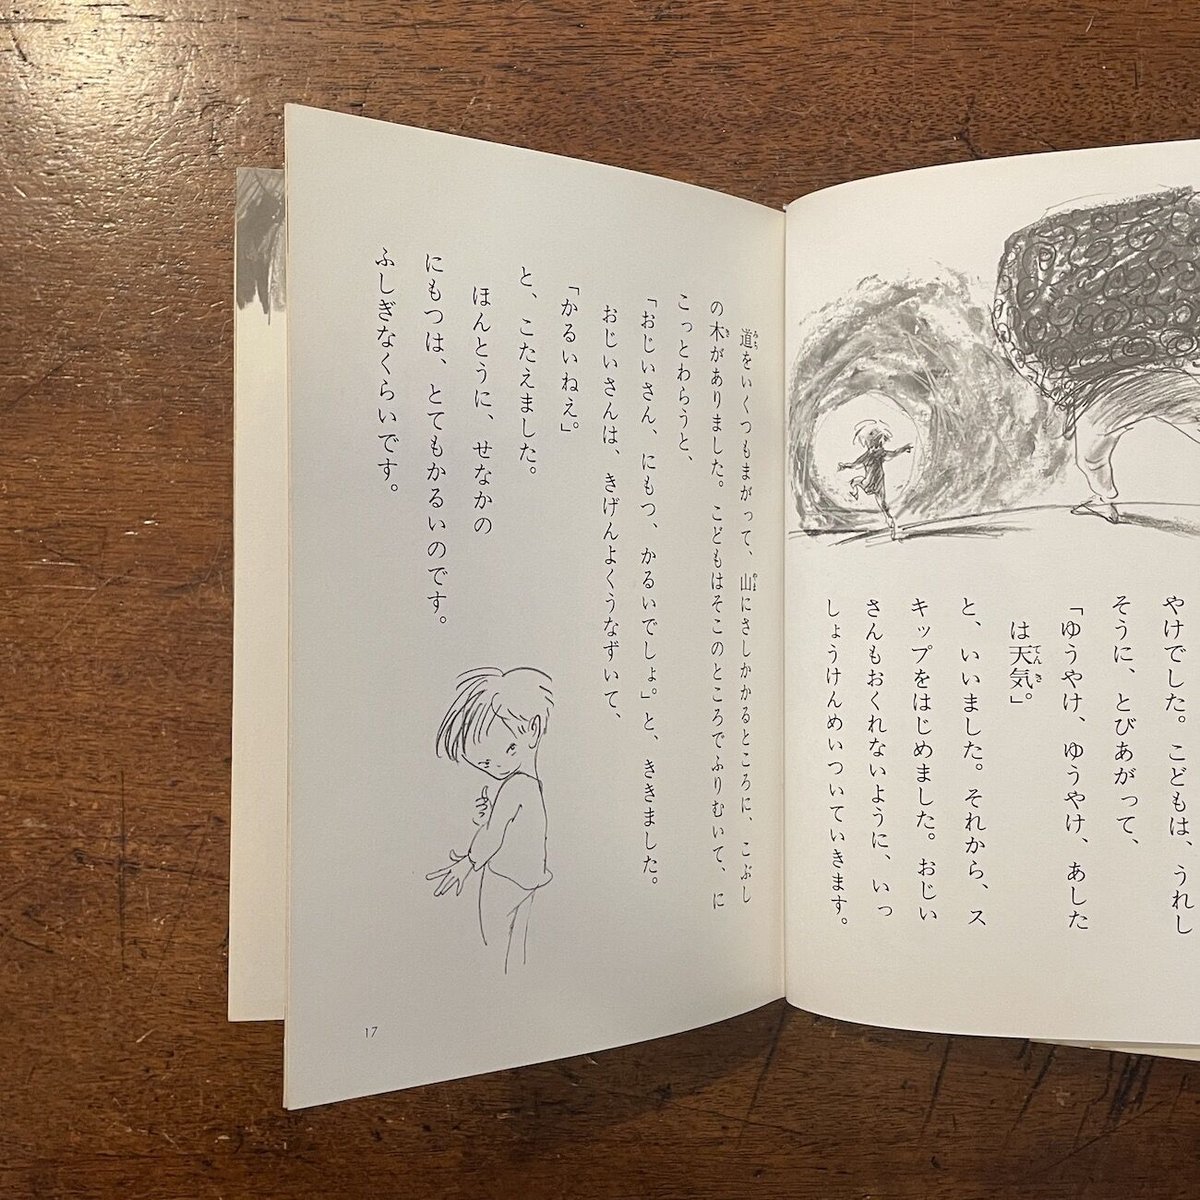 やけでした。こどもは、うれし
そうに、とびあがって、
「ゆうやけ、ゆうやけ、あした
は天気。」
と、いいました。それから、ス
キップをはじめました。おじい
さんもおくれないように、いっ
しょうけんめいついていきます。
道をいくつもまがって、山にさしかかるところに、こぶし
の木がありました。こどもはそこのところでふりむいて、に
こっとわらうと、
「おじいさん、にもつ、かるいでしょ。」と、ききました。
おじいさんは、きげんよくうなずいて、
「かるいねえ。」
と、こたえました。
ほんとうに、せなかの
にもつは、とてもかるいのです。
ふしぎなくらいです。
17